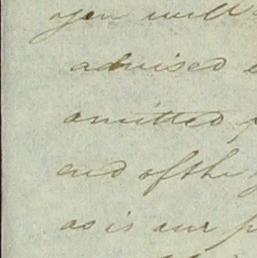 you will
advised
omitted
end of the
as is our